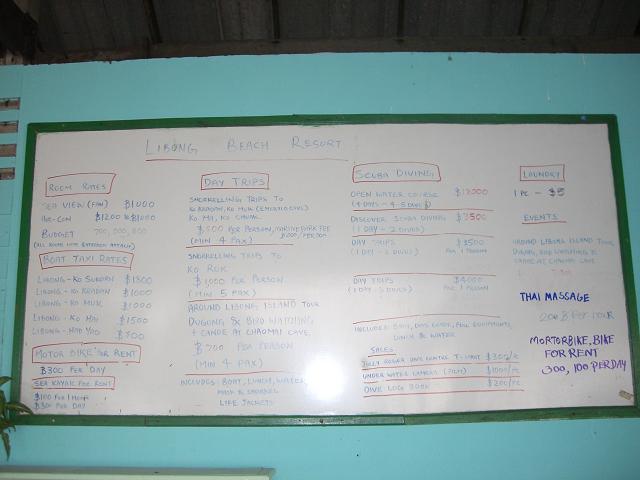 LIBONG BEACH RESORT
ROOM RATES
SEA VIEW (FAN) $1000
AIR-CON $1200
BUDGET 700, 500, 300
BOAT TAXI RATES
LIBONG - KO SUKORN $1300
LIBONG - KO KRADAN $1000
LIBONG - KO MUK $1000
LIBONG - KO $1500
LIBONG - HAD YAO $700
MOTOR BIKE FOR RENT
$300 PER DAY
SEA KAYAK FOR RENT
$100 PER 1 HOUR
PER DAY
DAY TRIPS
SNORKELLING TRIPS TO
KO KRADAN, KO MUK (EMERALD CAVE)
KO MA, KO CHUAK
PER PERSON, MARINE PARK FEE
PER PERSON
(MIN 4 PAX)
SNORKELLING TRIPS TO
KO ROK
$1,000 PER PERSON
(MIN 5 PAX)
AROUND LIBONG ISLAND TOUR
DUGONG & BIRD WATCHING
+ CANOE AT CHAOMAI CAVE
$700 PER PERSON
(MIN 4 PAX)
INCLUDES: BOAT, LUNCH, WATER
MASK & SNORKEL
LIFE JACKETS
SCUBA DIVING
OPEN WATER COURSE $12000
(4 DAYS - 4-5 DIVES)
DISCOVER SCUBA DIVING $3500
(1 DAY - 2 DIVES)
DAY TRIPS $3500
(1 DAY - 2 DIVES) PER 1 PERSON
DAY TRIPS $4000
(1 DAY - DIVES) PER 1 PERSON
INCLUDES: BOAT, DIVE GUIDE, FULL EQUIPMENT,
LUNCH & WATER
SALES
JOLLY ROGER DIVE CENTRE T-SHIRT $300/
UNDER WATER CAMERA (FILM) $1000/
DIVE LOG BOOK $200/
LAUNDRY
1 PC - $5
EVENTS
AROUND LIBONG ISLAND TOUR
DUGONG, BIRD WATCHING &
CANOE AT CHAOMAI CAVE
THAI MASSAGE
200 B PER HOUR
MORTORBIKE, BIKE
FOR RENT
300, 100 PER DAY